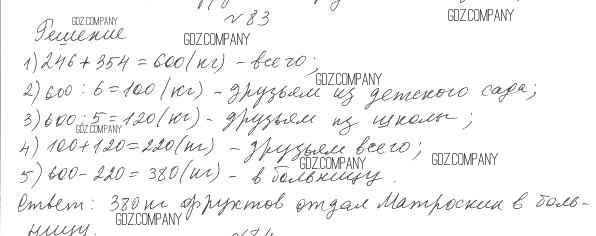 №83
GDZ.COMPANY
Решение
GDZ.COMPANY
GDZ.COMPANY
1) 246 + 354 = 600 (кг) - всего;
GDZ.COMPANY
2) 600 : 6 = 100 (кг) - друзьям из детского сада;
3) 600 : 5 = 120 (кг) - друзьям из школы;
GDZ.COMPANY
4) 100 + 120 = 220 (кг) - друзьям всего;
GDZ.COMPANY
GDZ.COMPANY
5) 600 - 220 = 380 (кг) - в больницу.
Ответ: 380 кг фруктов отдал Матроскин в боль-
GDZ.COMPANY
ницу.
№84